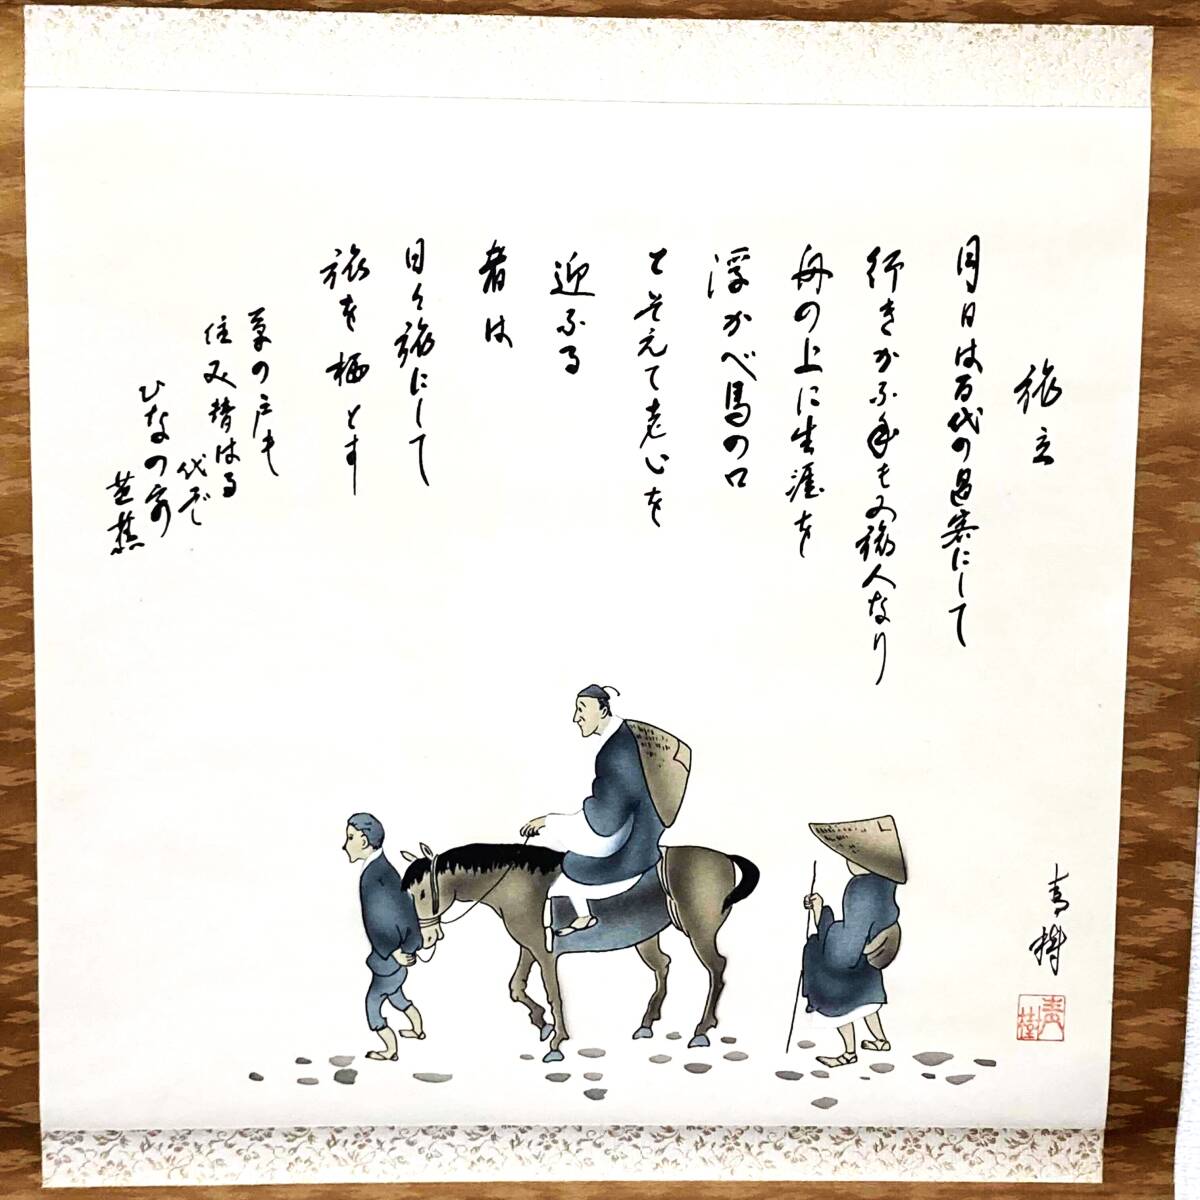 旅立
月日は百代の過客にして
行きかふ年も又旅人なり
舟の上に生涯を
浮かべ馬の口
とそえて老いを
迎ふる
者は
日々旅にして
旅を栖とす
草の戸も
住み替はる
代ぞ
ひなの家
芭蕉
青樹
青樹